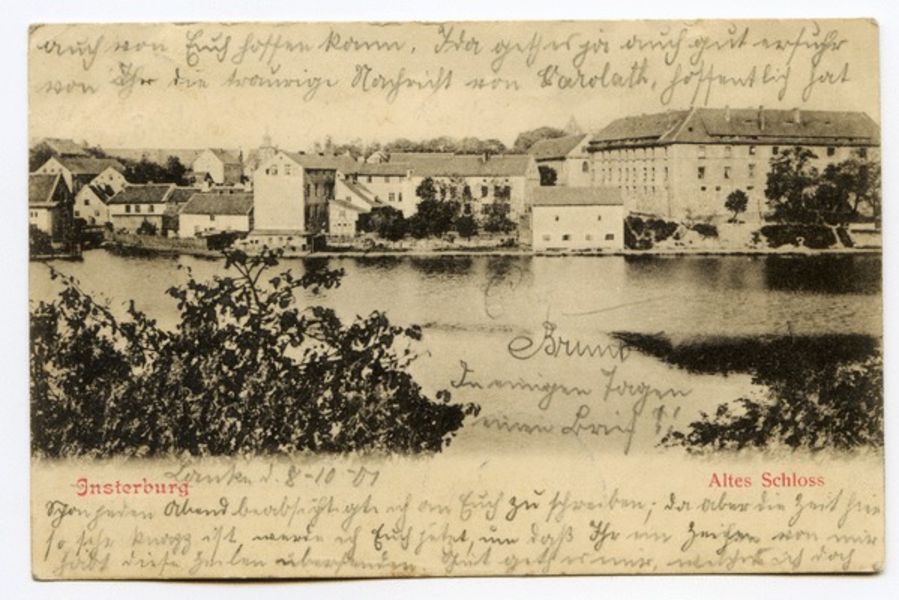 auch von Euch hoffen kann. Ida geht es ja auch gut erfuhr
von Ihr die traurige Nachricht von Carolath, hoffentlich hat
Bruno
In einigen Tagen
einen Brief!!
d. 8-10-01
Insterburg
Altes Schloss
Schon jeden Abend beabsichtigte ich an Euch zu schreiben; da aber die Zeit hier
so sehr knapp ist, werde ich Euch jetzt, um daß Ihr ein Zeichen von mir
habt diese Zeilen übersenden. Gut geht es mir, welches ich doch